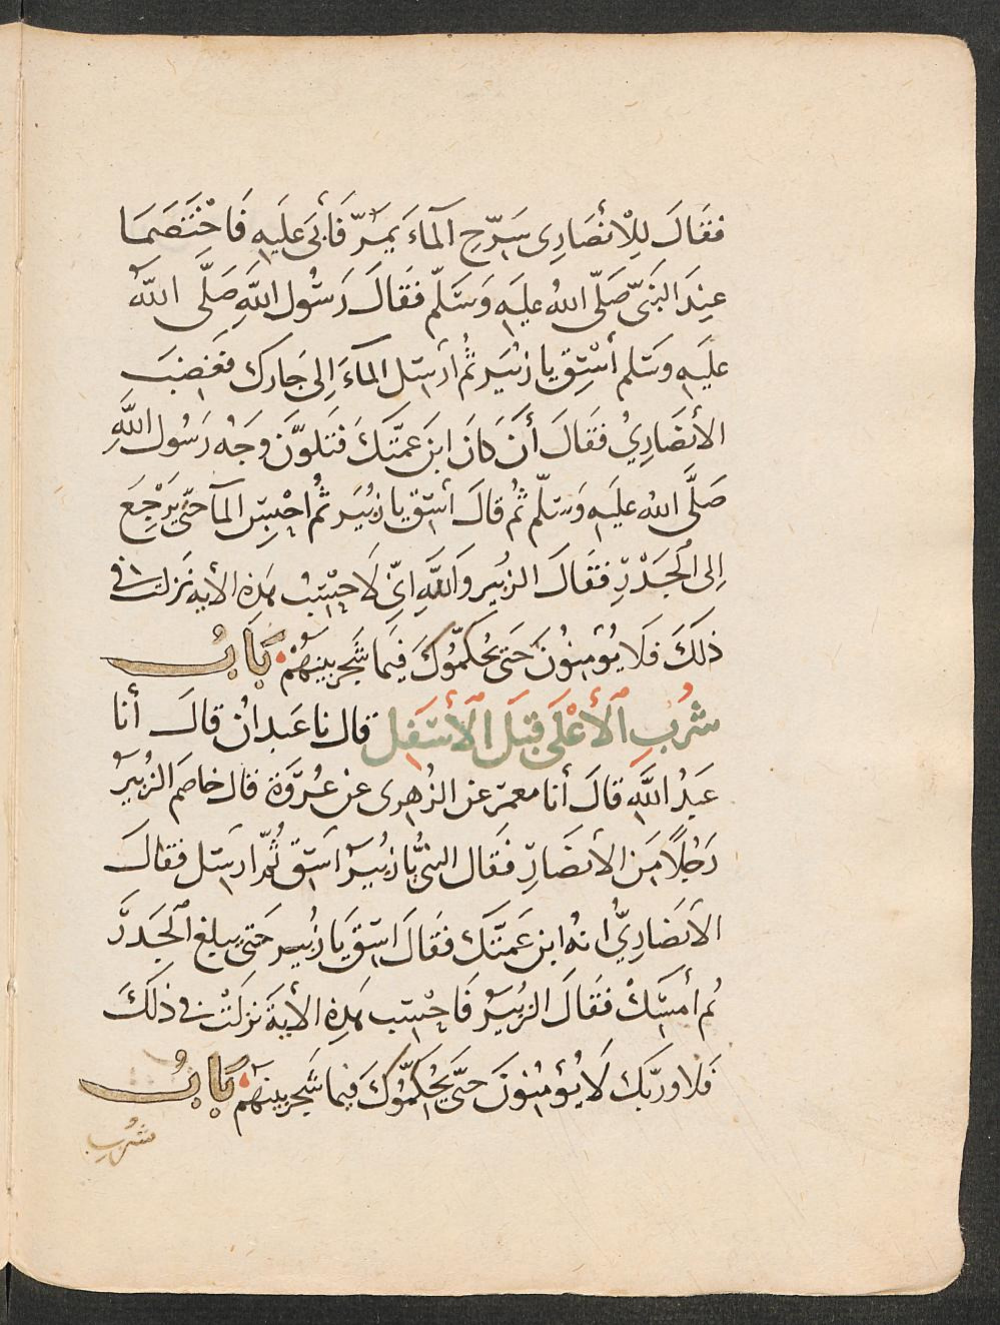 فقَالَ لِلْأَنْصَارِى سَرِّحِ الْمَاءَ يَمُرُّ فَأَبَى عَلَيهِ فَاخْتَصَمَا
عِندَ النَّبِىِّ صَلَّى اللهُ عليهِ وَسَلَّم فقَالَ رَسُول اللهِ صَلَّى اللهُ
علَيهِ وسَلم أَسْقِ يا زبَيْر ثُمَّ ارْسِل الماءَ اِلى جَارك فغَضبَ
الأنصَارِيُ فقَالَ أَنْ كانَ ابنَ عَمَّتكَ فتَلوَّن وجهُ رَسُول اللهِ
صَلَّى الله عليهِ وَسَلّم ثُم قالَ اسْقِ يا زبَيْر ثُم احْبِسِ الماَ حَتّى يَرْجِعَ
اِلى الْجَدْرِ فقَالَ الزبَيرُ وَاللهِ اِنّى لَاحْسِبُ هَذِهِ الأيةَ نَزلَت فى
ذلكَ فَلَا يُؤْمِنُونَ حَتى يُحَكِّمُوكَ فِيمَا شَجَرَ بَينَهُمْ بَابُ
شُرْبِ الْأَعْلَى قبَلَ الْأَسْفَلِ قال نا عَبدانُ قالَ أنا
عَبدُ اللهِ قالَ أنا معمَر عن الزُهرى عن عُرْوَةَ قال خاصَم الزبَيرُ
رَجُلًا مِنَ الأنصَارِ فقَال النبىُّ يا زبَيْرُ اسْقِ ثُمَّ ارسِل فقالَ
الأنصَارِيُّ انهُ ابن عَمتَّكَ فقَالَ اسْقِ يَا زبَيْر حَتى يبلغ الْجَدْرَ
ثم أمسِكْ فقَالَ الزبَيرُ فَاحْسِب هَذِهِ الأيةَ نزلَتْ فى ذلكَ
فَلَا وربّك لَا يُؤمِنُونَ حَتّى يُحَكِّمُوكَ فيما شَجَرَ بينهُمْ بَابُ
شُربِ